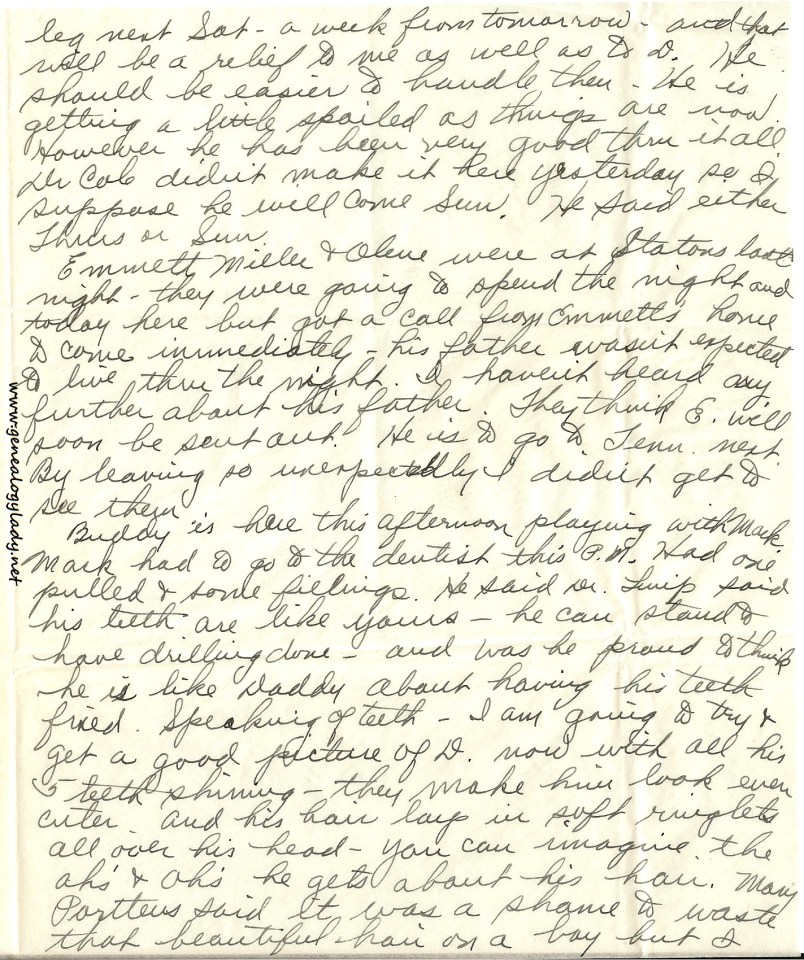 leg next Sat - a week from tomorrow - and that
will be a relief to me as well as to D. He
should be easier to handle then - He is
getting a little spoiled as things are now.
However he has been very good thru it all
Dr Cole didn't make it here yesterday so I
suppose he will come Sun. He said either
Thurs or Sun.
Emmett Miller & Olene were at Statons last
night - they were going to spend the night and
today here but got a call from Emmett's home
to come immediately - his father wasn't expected
to live thru the night. I haven't heard any
further about his father. They think E. will
soon be sent out. He is to go to Tenn. next.
By leaving so unexpectedly I didn't get to
see them.
Buddy is here this afternoon playing with Mark.
Mark had to go to the dentist this P.M. Had one
pulled & some fillings. He said Dr. said
his teeth are like yours - he can stand to
have drilling done - and was he proud to think
he is like Daddy about having his teeth
fixed. Speaking of teeth - I am going to try &
get a good picture of D. now with all his
5 teeth shining - they make him look even
cuter. And his hair lays in soft ringlets
all over his head - you can imagine the
ah's & oh's he gets about his hair. Mary
Portteus said it was a shame to waste
that beautiful hair on a boy but I
www.genealogylady.net